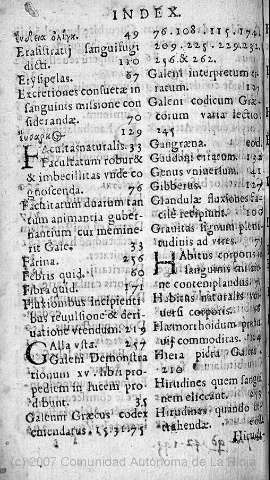 INDEX.
ἔνδεια ὀλίγα. 49
Erasistratij sanguisugi
dicti. 110
Erysipelas. 67
Excretiones consuetæ in
sanguinis missione con
siderandæ. 70
129
Facultas naturalis. 33
Facultatum robur &
& imbecillitas vnde co
gnoscenda. 76
Facultatum duarum tan
tum animantia guber-
nantium cur memine
rit Galen 33
Farina. 256
Febris quid. 60
Fibra quid. 171
Fluxionibus incipienti
bus reuulsione & deri
uatione vtendum. 219
Galla vsta. 257
Galeni Demonstra
tionum xv. libri pro-
pediem in lucem pro
dibunt. 35
Galenus Græcus codex
emendatus. 15.31.75
76.108.115.174.
209.225.229.232.
256. & 262.
Galeni interpretum er-
ratum.
Galeni codicum Græ-
corum varia lectio
145
Gangræna. eod.
erratum. 122
Genus vniuersum. 41
Gibberus. 127
Glandulæ fluxiones fa-
cilè recipiunt. 100
Grauitas signum pleni-
tudinis ad vires. 71
Habitus corporis in
sanguinis missio
ne contemplandus.
Habitus naturalis
uersi corporis.
Hæmorrhoidum
uis commoditas. 84
Hiera picra Galeni.
210
Hirudines quem sangui
nem eliciant.
Hirudines quando
trahendæ. eod.
Hirudi-
(c) 2007 Comunidad Autónoma de La Rioja